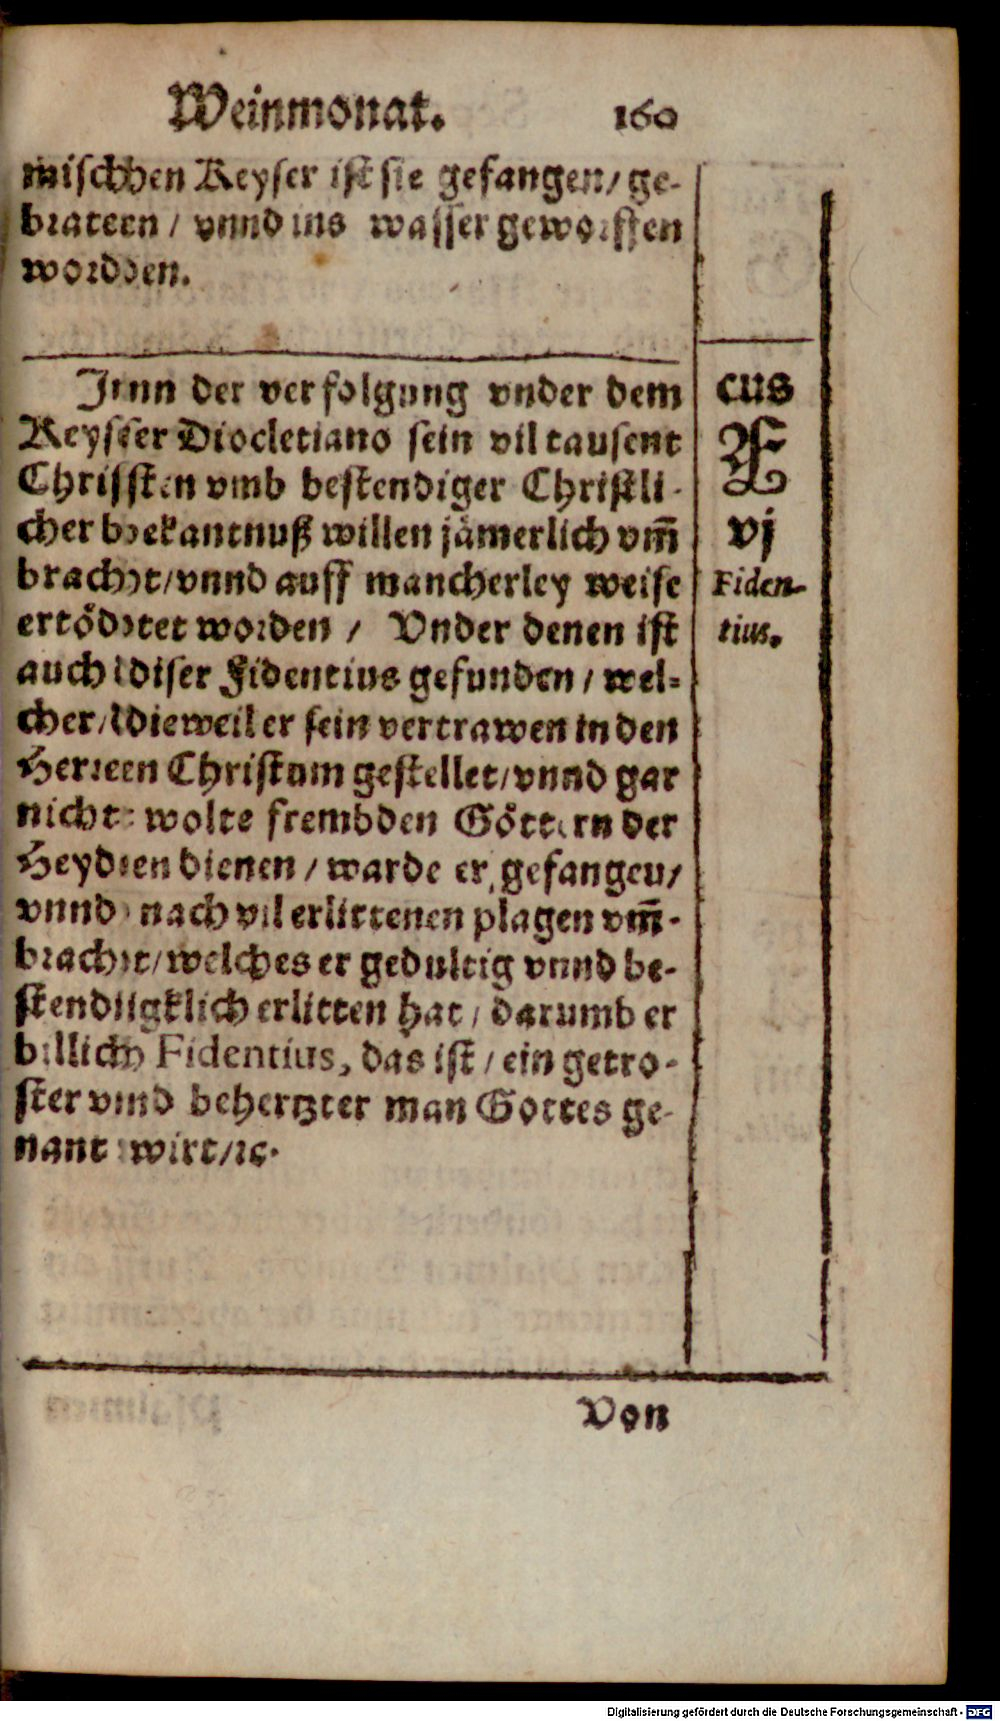 Weinmonat. 160
mischhen Keyser ist sie gefangen/ ge-
brateen / vnnd ins wasser geworffen
wordden.
Inn der verfolgung vnder dem
Keysser Diocletiano sein vil tausent
Chrissten vmb bestendiger Christli-
cher bekantnuß willen jämerlich vm̄
bracht/vnnd auff mancherley weise
ertödtet worden / Vnder denen ist
auch diser Fidentius gefunden / wel-
cher/ dieweil er sein vertrawen in den
Herreen Christum gestellet/vnnd gar
nicht wolte frembden Göttern der
Heyden dienen / warde er gefangen/
vnnd nach vil erlittenen plagen vm̄-
bracht/welches er gedultig vnnd be-
stendiigklich erlitten hat / darumb er
billich Fidentius, das ist / ein getro-
ster vnnd behertzter man Gottes ge-
nant wirt/ꝛc.
cus
A
vj
Fiden-
tius.
Von
Digitalisierung gefördert durch die Deutsche Forschungsgemeinschaft - DFG